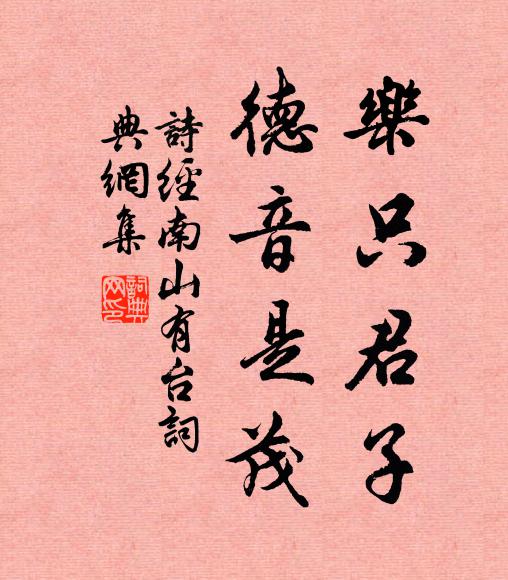 樂只君子
德音是茂
詩經南山有台詞
典網集
詞典網印